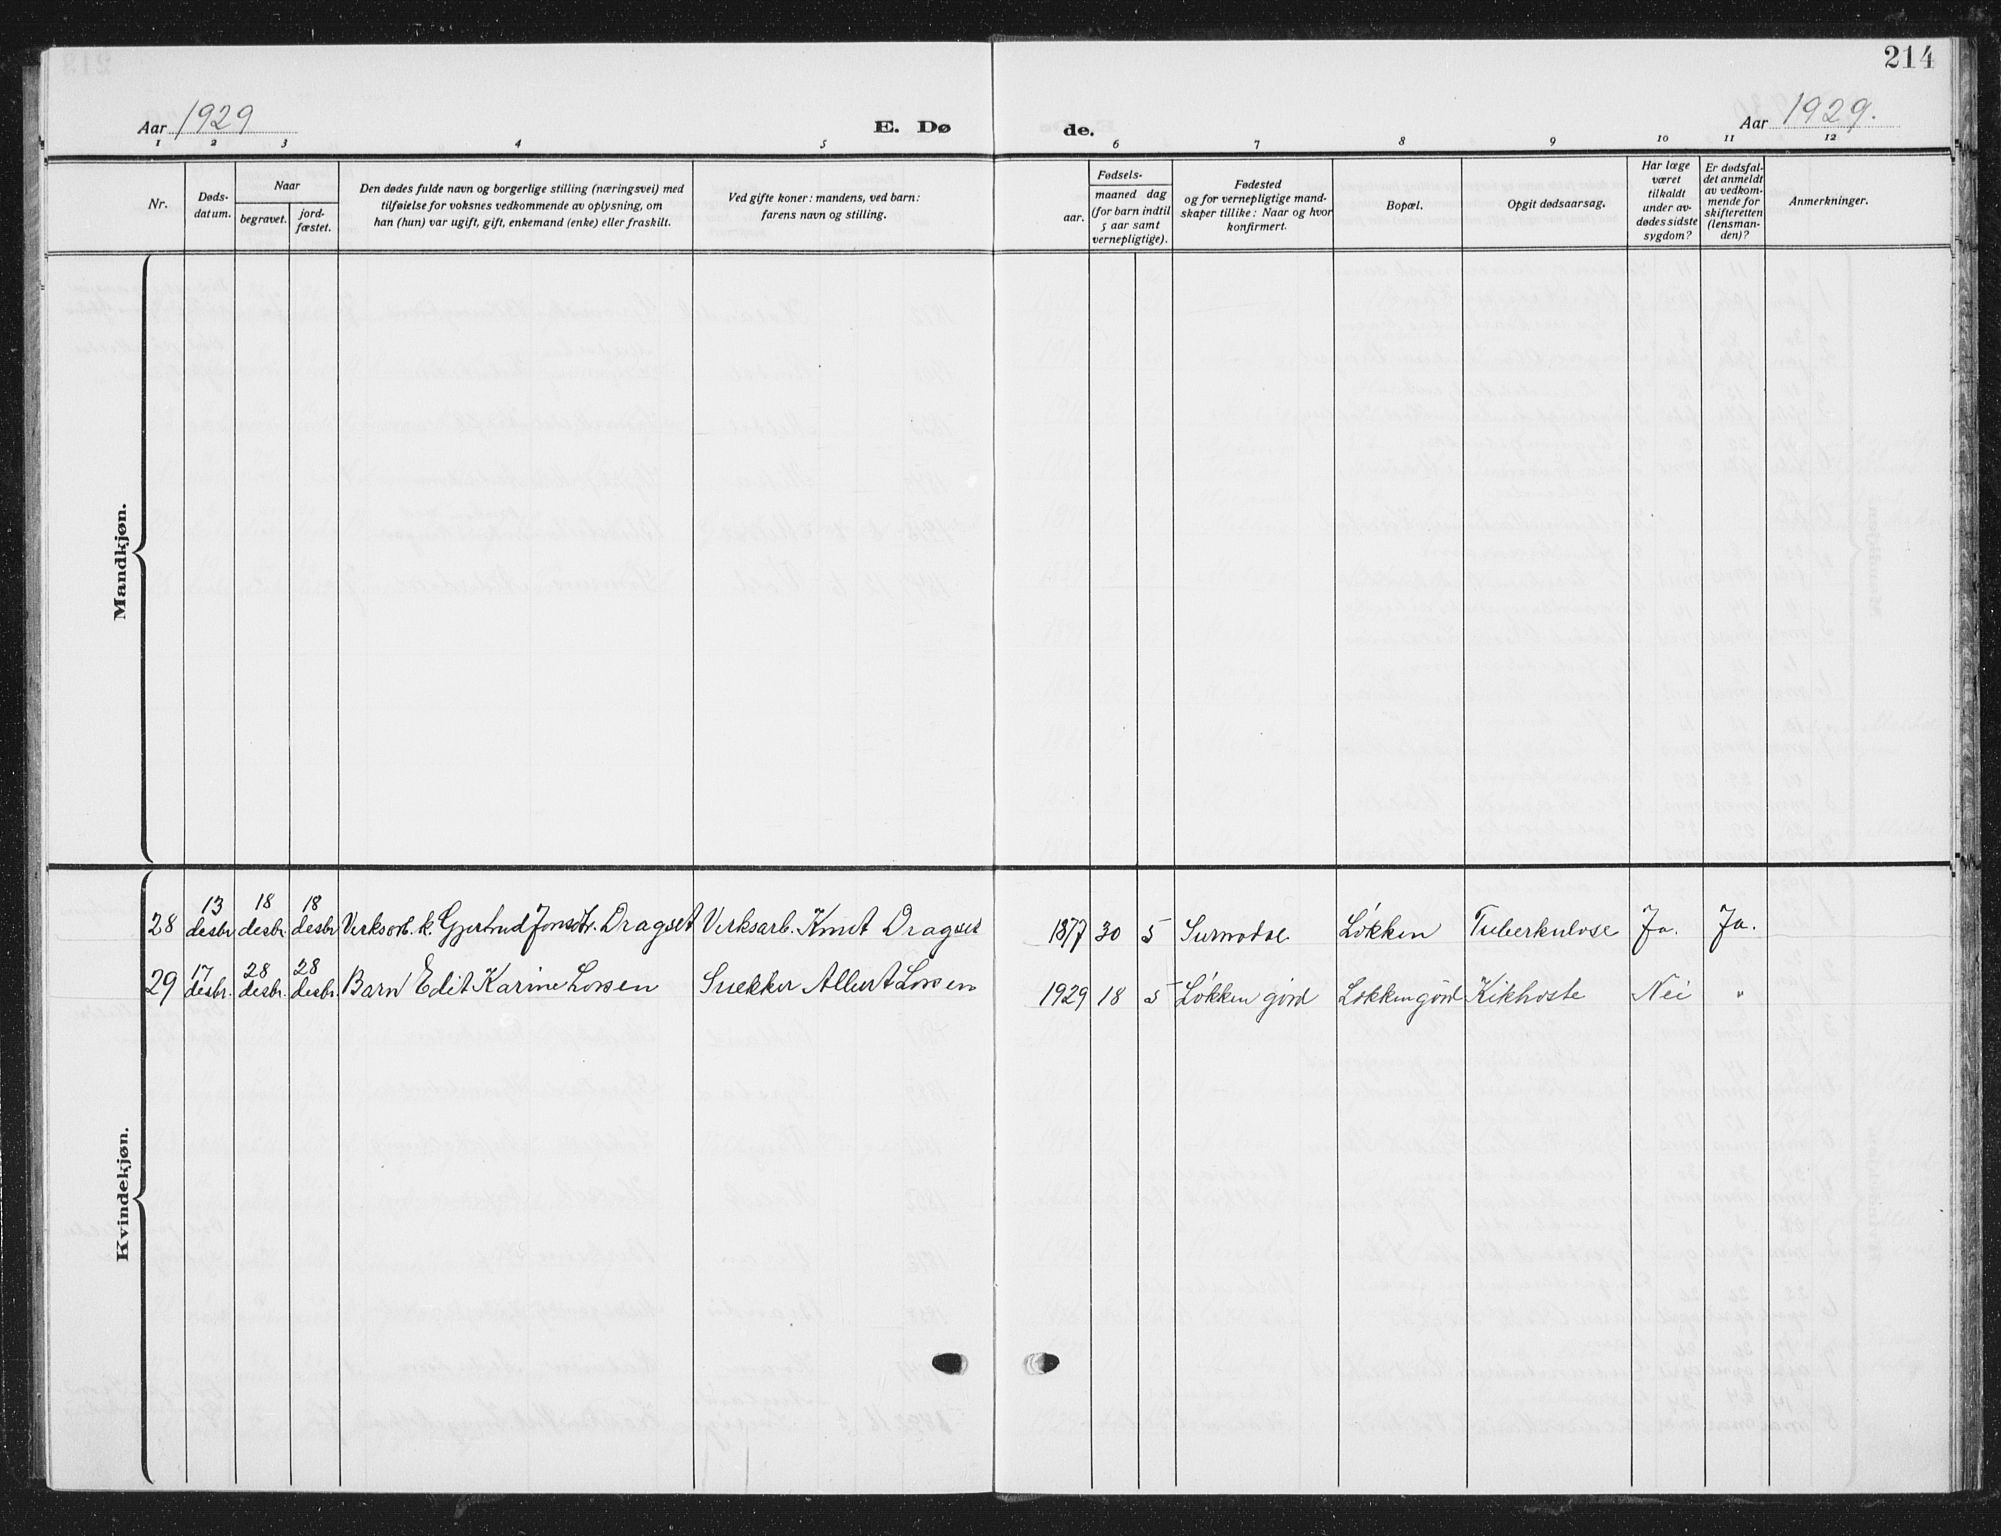 214
Aar 1929
E. Dø
de.
Aar 1929.
1 2 3 4 5 6 7 8 9 10 11 12
Nr.
Døds-
datum.
Naar
begravet.
jord-
fæstet.
Den dødes fulde navn og borgerlige stilling (næringsvei) med
tilføielse for voksnes vedkommende av oplysning, om
han (hun) var ugift, gift, enkemand (enke) eller fraskilt.
Ved gifte koner: mandens, ved barn:
farens navn og stilling.
Fødsels-
aar.
maaned dag
(for barn indtil
5 aar samt
vernepligtige).
Fødested
og for vernepligtige mand-
skaper tillike: Naar og hvor
konfirmert.
Bopæl.
Opgit dødsaarsag.
Har læge
været
tilkaldt
under av-
dødes sidste
sygdom?
Er dødsfal-
det anmeldt
av vedkom-
mende for
skifteretten
(lensman-
den)?
Anmerkninger.
Mandkjøn.
13 18 18
28 desbr desbr. desbr Verksarb. k. Gjertrud Jonsdtr. Dragset Verksarb. Knut Dragset 1877 30 5 Surnadal Løkken Tuberkulose Ja. Ja.
17 28 28
29 desbr. desbr. desbr. Barn Edit Karine Larsen Snekker Albert Larsen 1929 18 5 Løkken gård Løkken gård Kikhoste Nei "
Kvindekjøn.